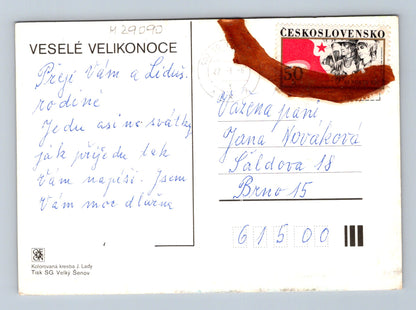 H 29090
VESELÉ VELIKONOCE
Přeji Vám a Liduš.
rodině
Jedu asi na svátky
jak přijedu tak
Vám napíši. Jsem
Vám moc dlužna
Kolorovaná kresba J. Lady
Tisk SG Velký Šenov
ČESKOSLOVENSKO
50
Vážená paní
Jana Nováková
Šáldova 18
Brno 15
61500